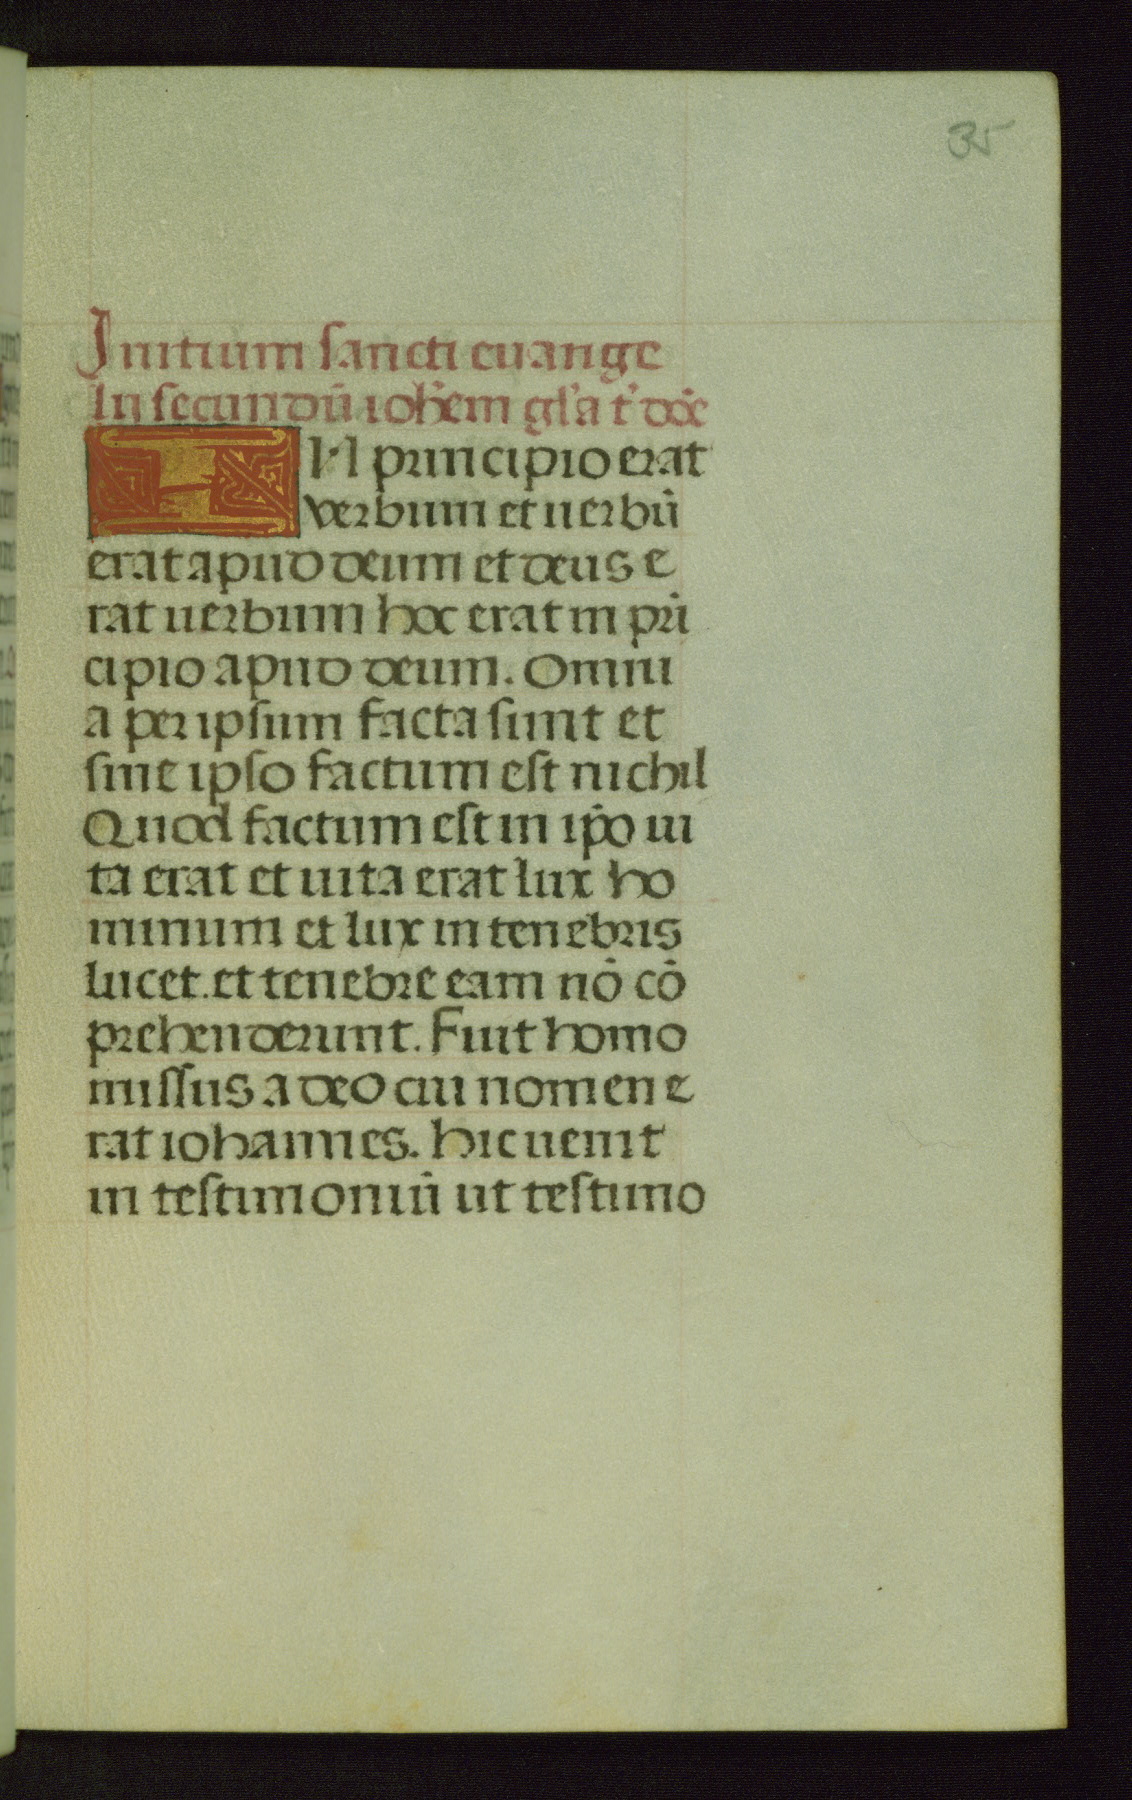 35
Initium sancti euange
lii secundū ioh̄em gl'a t' dn̄e
IN principio erat
verbum et uerbū
erat apud deum et deus e
rat uerbum hoc erat in pri
cipio apud deum. Omni
a per ipsum facta sunt et
sine ipso factum est nichil
Quod factum est in ip̄o ui
ta erat et uita erat lux ho
minum et lux in tenebris
lucet. et tenebre eam nō cō
prehenderunt. Fuit homo
missus a deo cui nomen e
rat iohannes. hic uenit
in testimoniū ut testimo